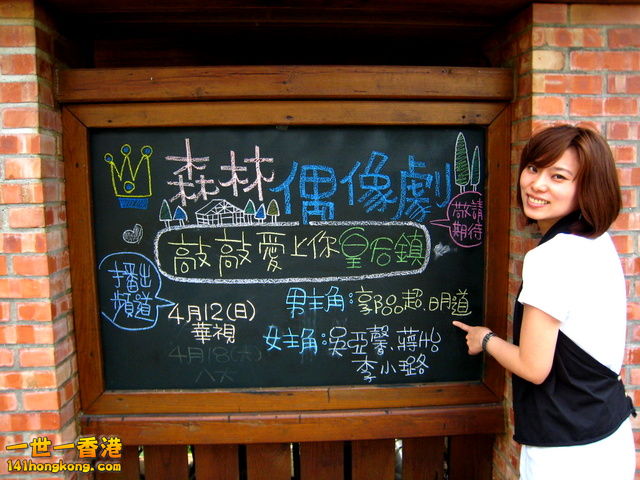 森林偶像劇
敬請
期待
敲敲愛上你皇后鎮
播出
頻道
4月12(日)
華視
4月18(六)
八大
男主角:郭品超、明道
女主角:吳亞馨、蔣怡
李小璐
一世一香港
141hongkong.com